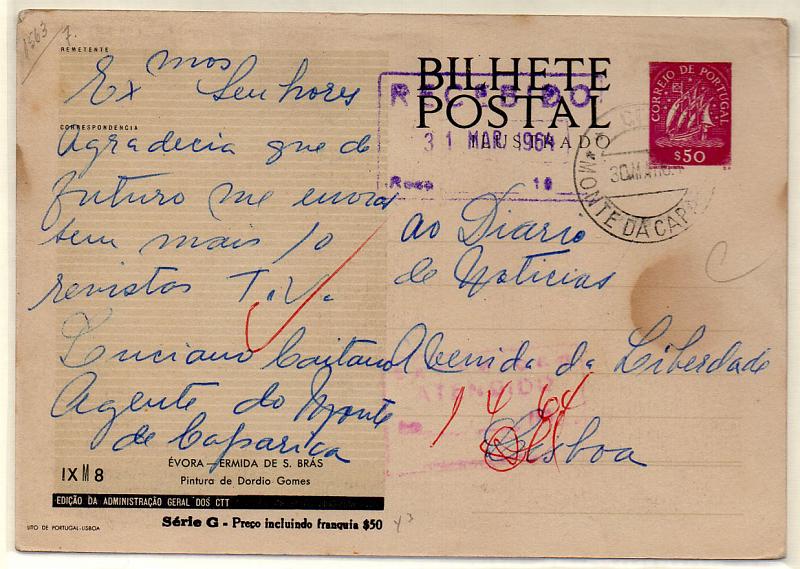 1563
7.
REMETENTE
Exmos Senhores
CORRESPONDENCIA
Agradecia que de
futuro me enviar
sem mais 10
revistas T.V.
Luciano Caitano
Agente do Monte
de Caparica
IX M 8
ÉVORA — ERMIDA DE S. BRÁS
Pintura de Dordio Gomes
EDIÇÃO DA ADMINISTRAÇÃO GERAL DOS CTT
LITO DE PORTUGAL-LISBOA
Série G - Preço incluindo franquia $50
BILHETE
POSTAL
ILUSTRADO
RECEBIDO
31 MAR 1964
CORREIO DE PORTUGAL
$50
MONTE DA CAPARICA
ao Diario
de Noticias
Abenida da Liberdade
ATENDIDO
1 4 64
Lisboa